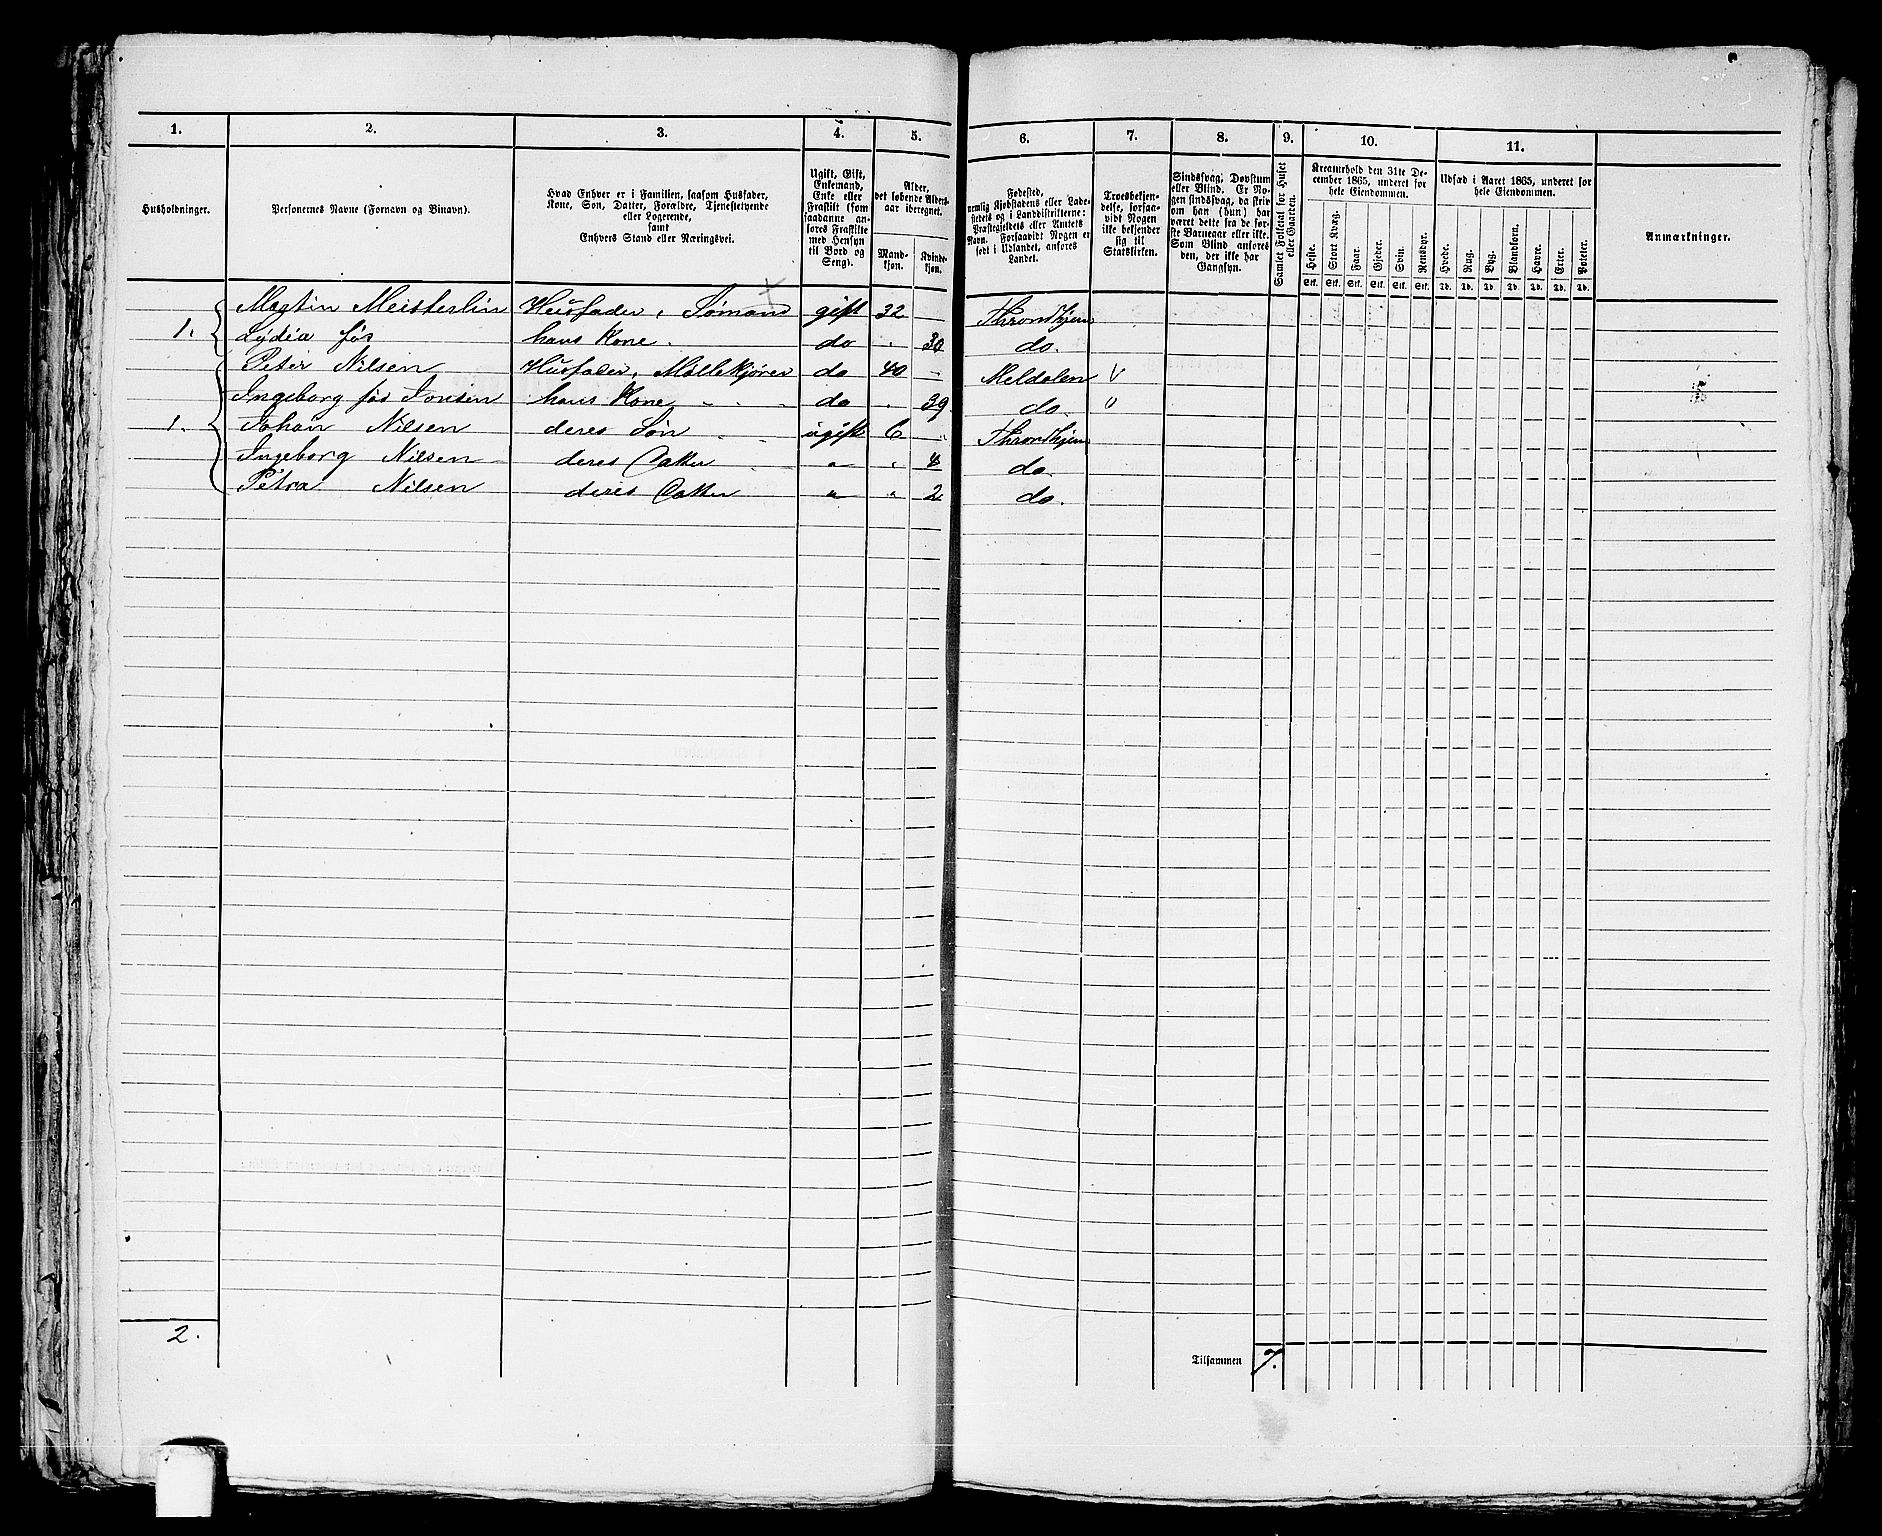 1. 2. 3. 4. 5. 6. 7. 8. 9. 10. 11.
Husholdninger.
Personernes Navne (Fornavn og Binavn).
Hvad Enhver er i Familien, saasom Husfader,
Kone, Søn, Datter, Forældre, Tjenestetyende
eller Logerende,
samt
Enhvers Stand eller Næringsvei.
Ugift, Gift,
Enkemand,
Enke eller
Fraskilt (som
saadanne an-
føres Fraskilte
med Hensyn
til Bord og
Seng).
Alder,
det løbende Alders-
aar iberegnet.
Mand-
kjøn.
Kvinde-
kjøn.
Fødested,
nemlig Kjøbstadens eller Lade-
stedets og i Landdistrikterne:
Præstegjeldets eller Amtets
Navn. Forsaavidt Nogen er
født i Udlandet, anføres
Landet.
Troesbekjen-
delse, forsaa-
vidt Nogen
ikke bekjender
sig til
Statskirken.
Sindssvag, Døvstum
eller Blind. Er No-
gen sindssvag, da skriv
om han (hun) har
været dette fra de før-
ste Barneaar eller ikke.
Som Blind anføres
den, der ikke har
Gangsyn.
Samlet Folketal for Huset
eller Gaarden.
Kreaturhold den 31te De-
cember 1865, underet for
hele Eiendommen.
Heste. Stort Kvæg. Faar. Gjeder. Svin. Rensdyr.
Stk. Stk. Stk. Stk. Stk. Stk.
Udsæd i Aaret 1865, underet for
hele Eiendommen.
Hvede. Rug. Byg. Blandkorn. Havre. Erter. Poteter.
Td. Td. Td. Td. Td. Td. Td.
Anmærkninger.
Martin Meisterlin Husfader, Sømand gift 32 Throndhjem
1. Lydia før hans Kone do 30 do.
Peter Nilsen Husfader, Møllekjører do 40 Meldalen
Ingeborg før Jonsen hans Kone do 39 do.
1. Johan Nilsen deres Søn ugift 6 Throndhjem
Ingeborg Nilsen deres Datter " " 4 do
Petra Nilsen deres Datter " " 2 do.
2.
Tilsammen 7.